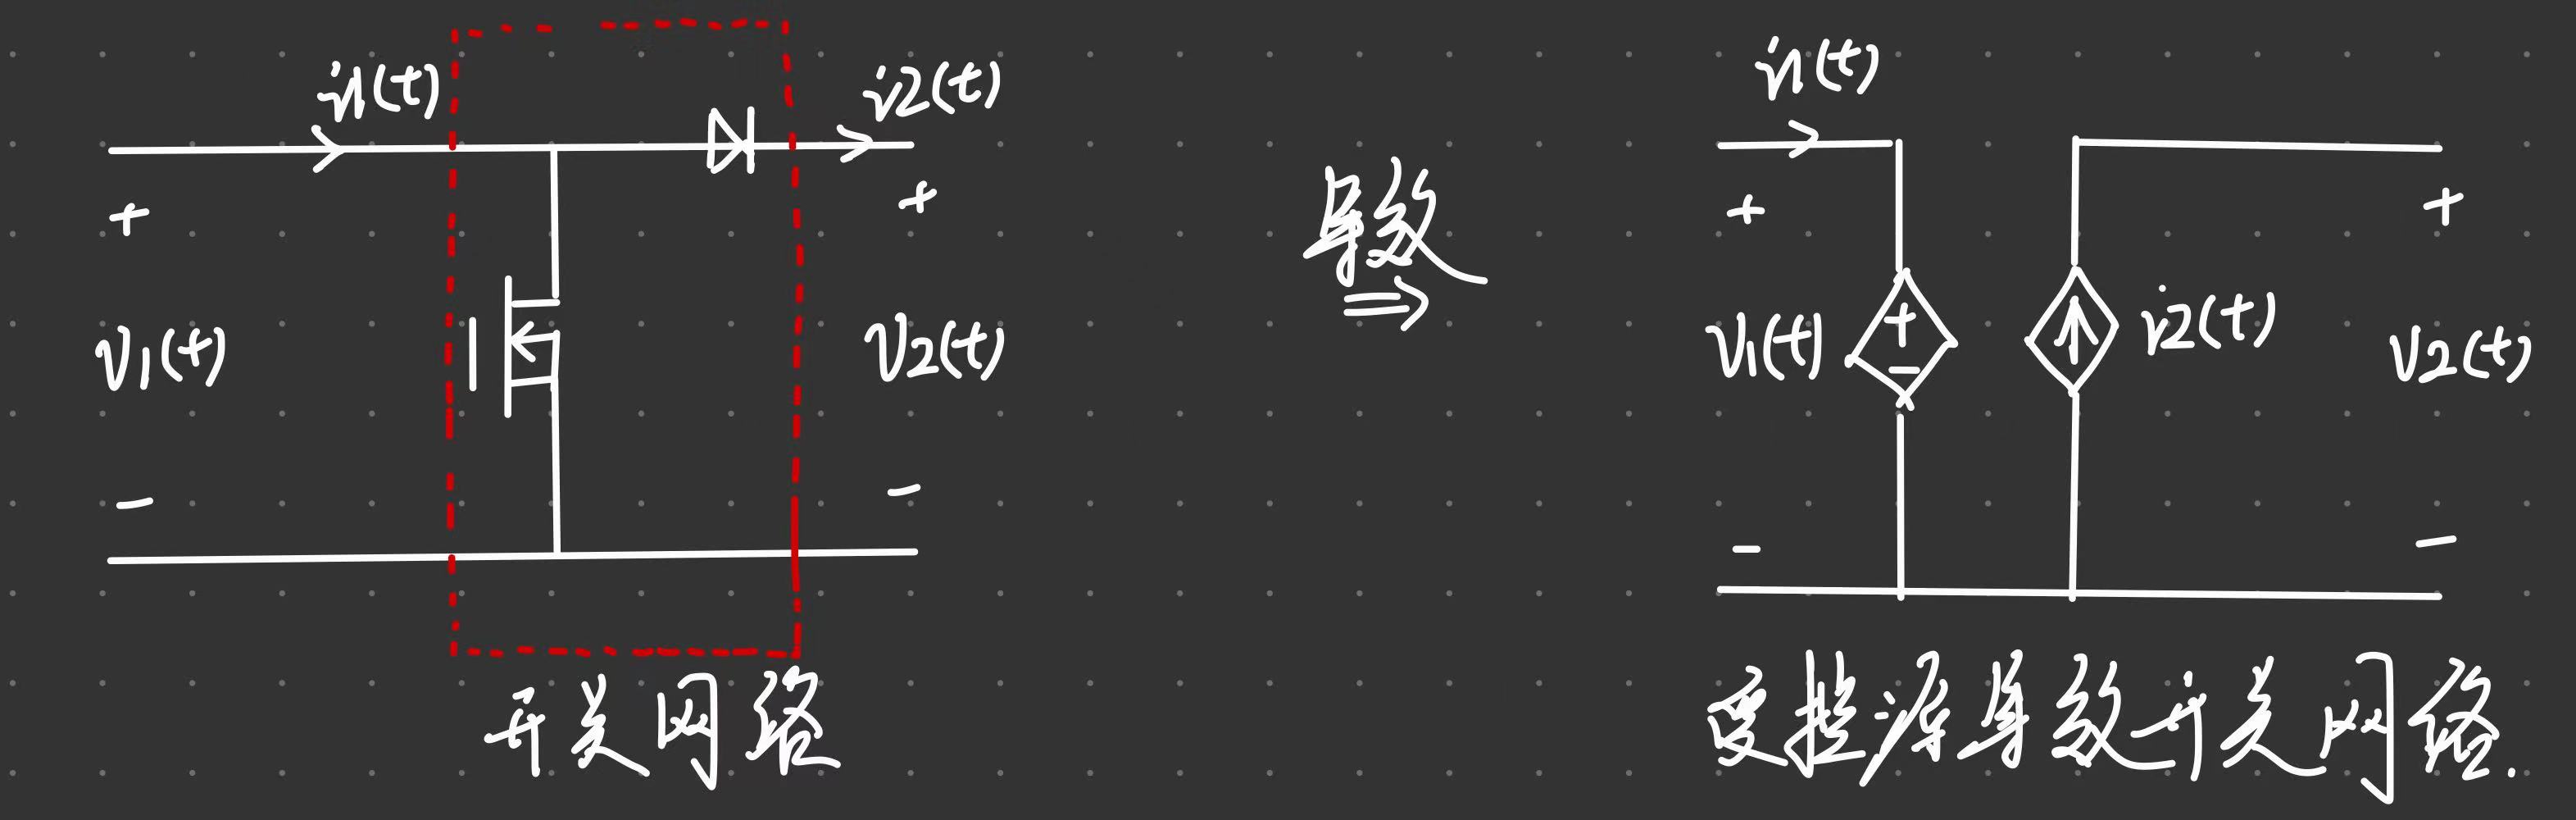 i1(t)
i2(t)
+
+
V1(t)
V2(t)
-
-
开关网络
等效
⇒
i1(t)
+
+
V1(t)
+
-
i2(t)
V2(t)
-
-
受控源等效开关网络.